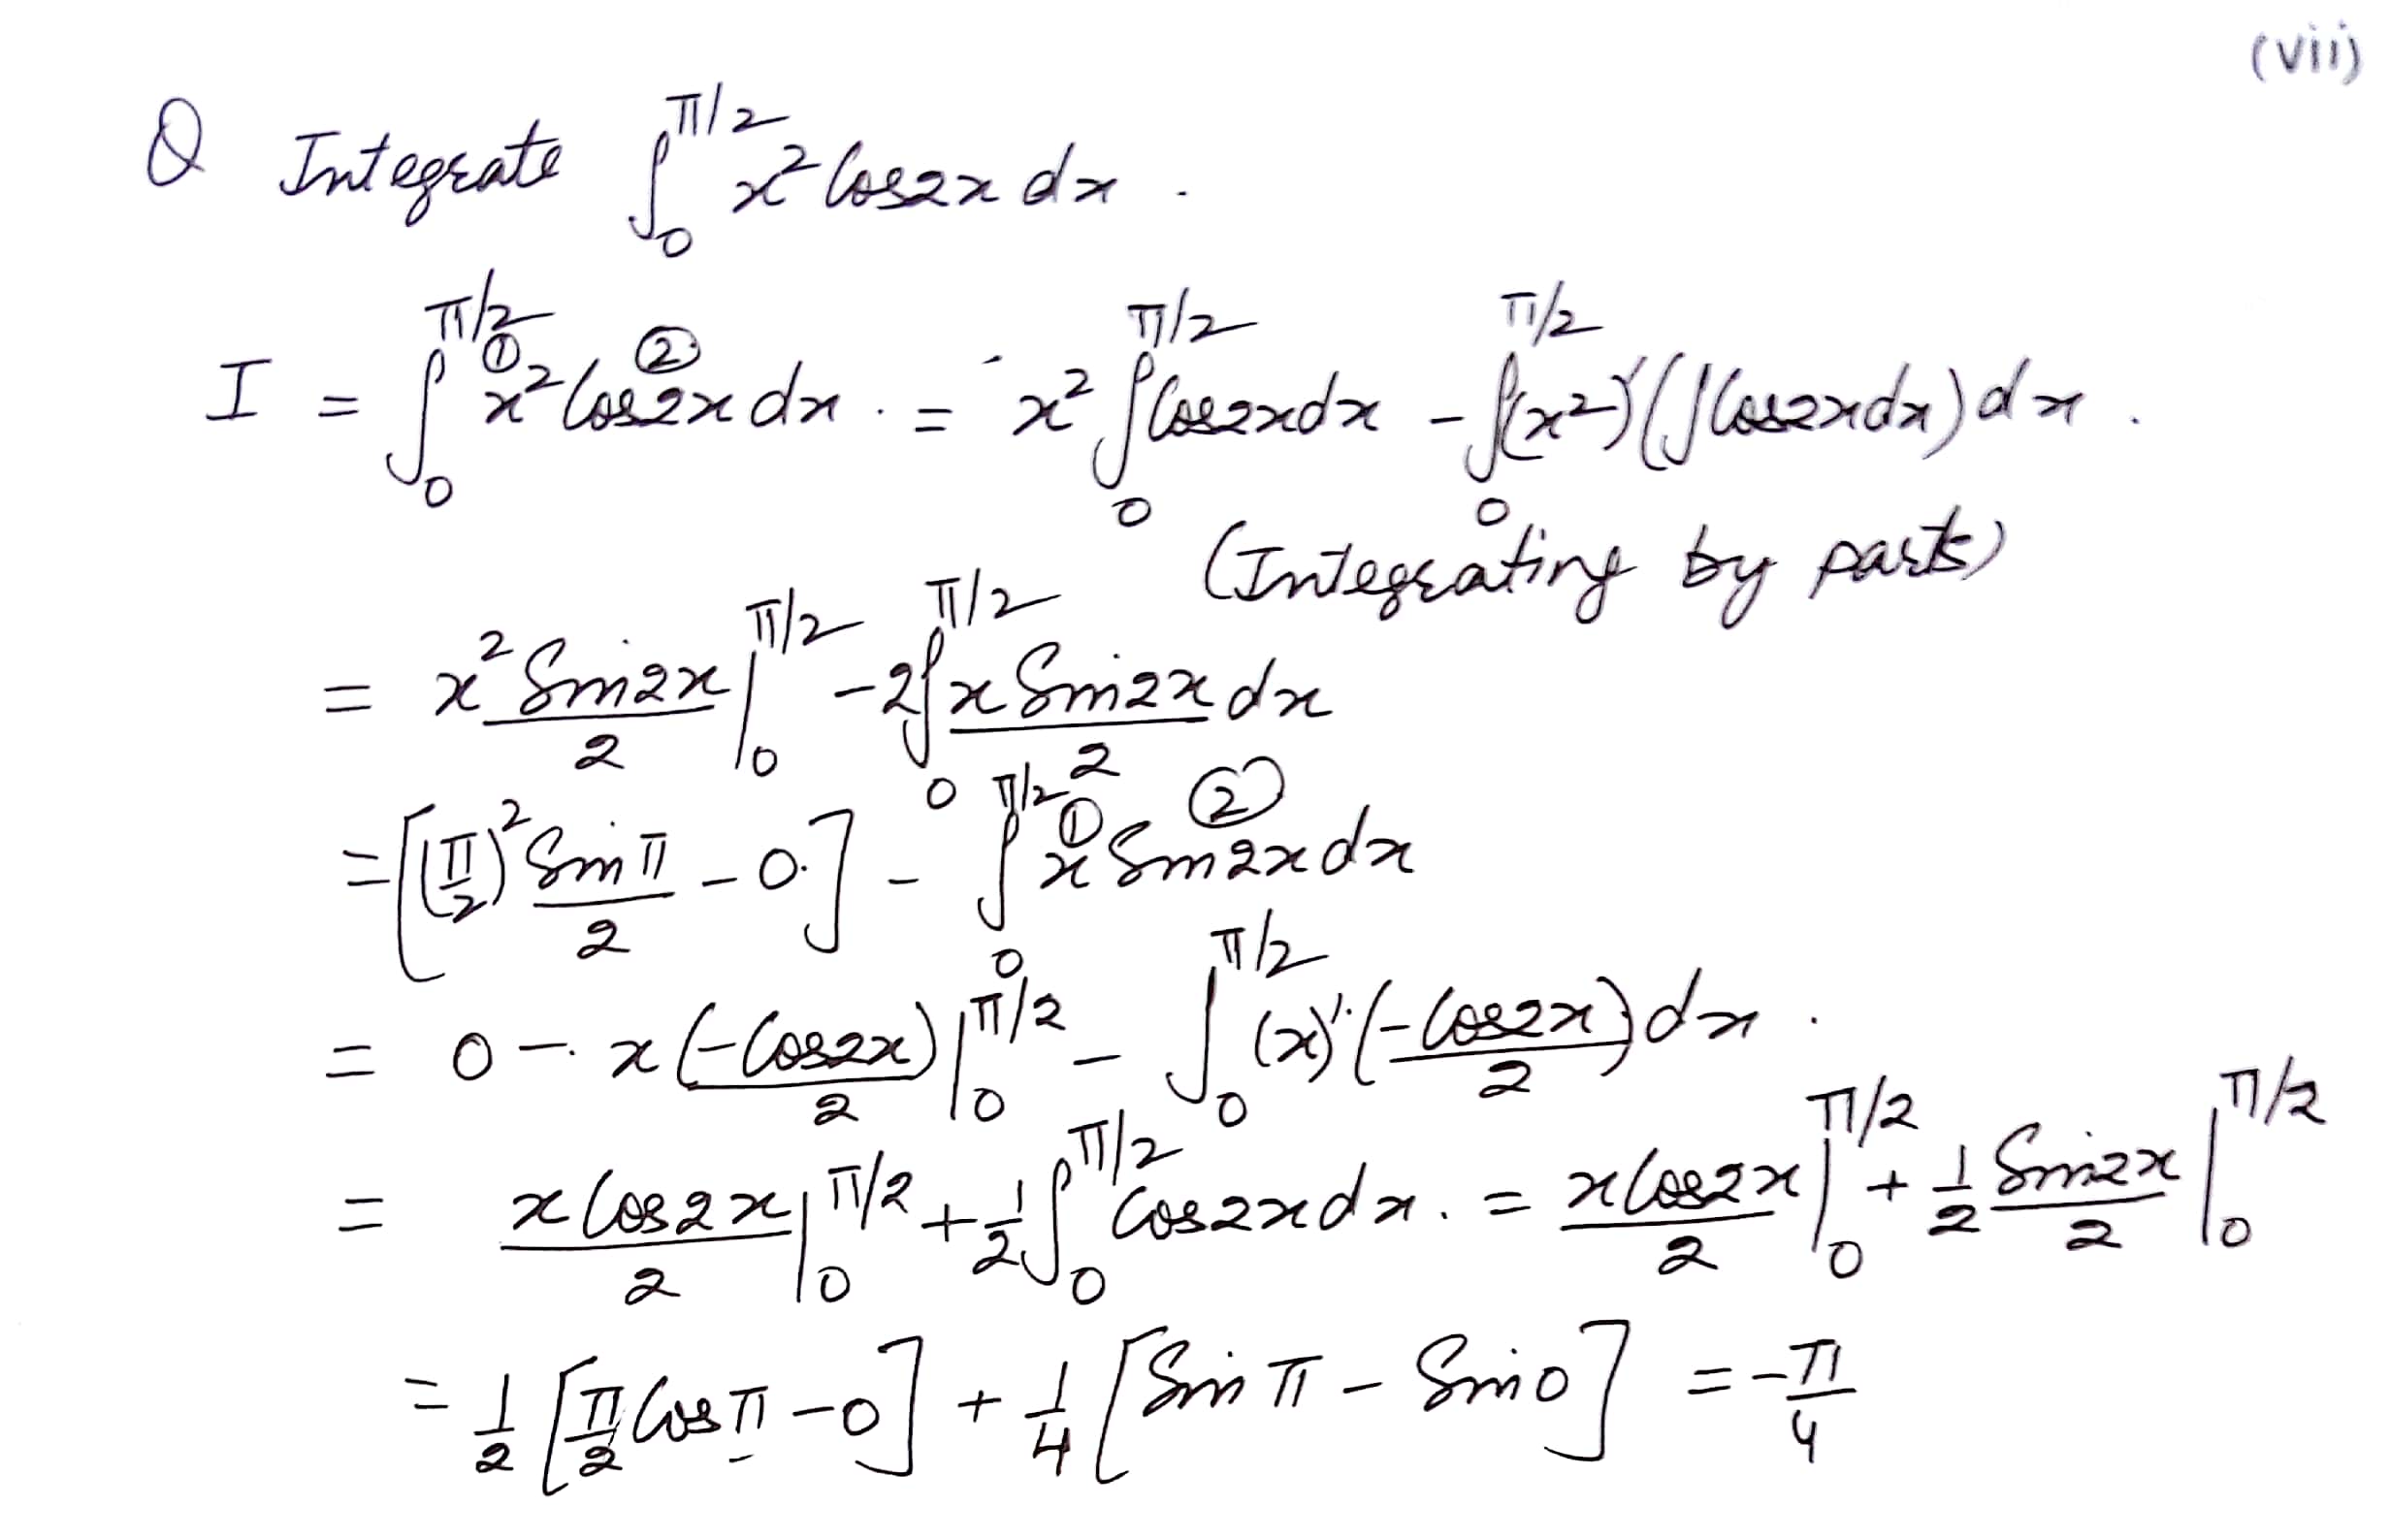 (vii)
Q Integrate ∫₀^{π/2} x² Cos2x dx .
I = ∫₀^{π/2} x² ① Cos2x ② dx . = x² ∫₀^{π/2} Cos2x dx - ∫₀^{π/2} (x²)' (∫Cos2x dx) dx .
(Integrating by parts)
= x² Sin2x/2 |₀^{π/2} - 2∫₀^{π/2} x Sin2x/2 dx
= [(π/2)² Sin π/2 - 0.] - ∫₀^{π/2} x ① Sin2x ② dx
= 0 - x (-Cos2x)/2 |₀^{π/2} - ∫₀^{π/2} (x)' (-Cos2x/2) dx .
= x Cos2x/2 |₀^{π/2} + 1/2 ∫₀^{π/2} Cos2x dx . = x Cos2x/2 |₀^{π/2} + 1/2 Sin2x/2 |₀^{π/2}
= 1/2 [π/2 Cos π - 0] + 1/4 [Sin π - Sin 0] = -π/4